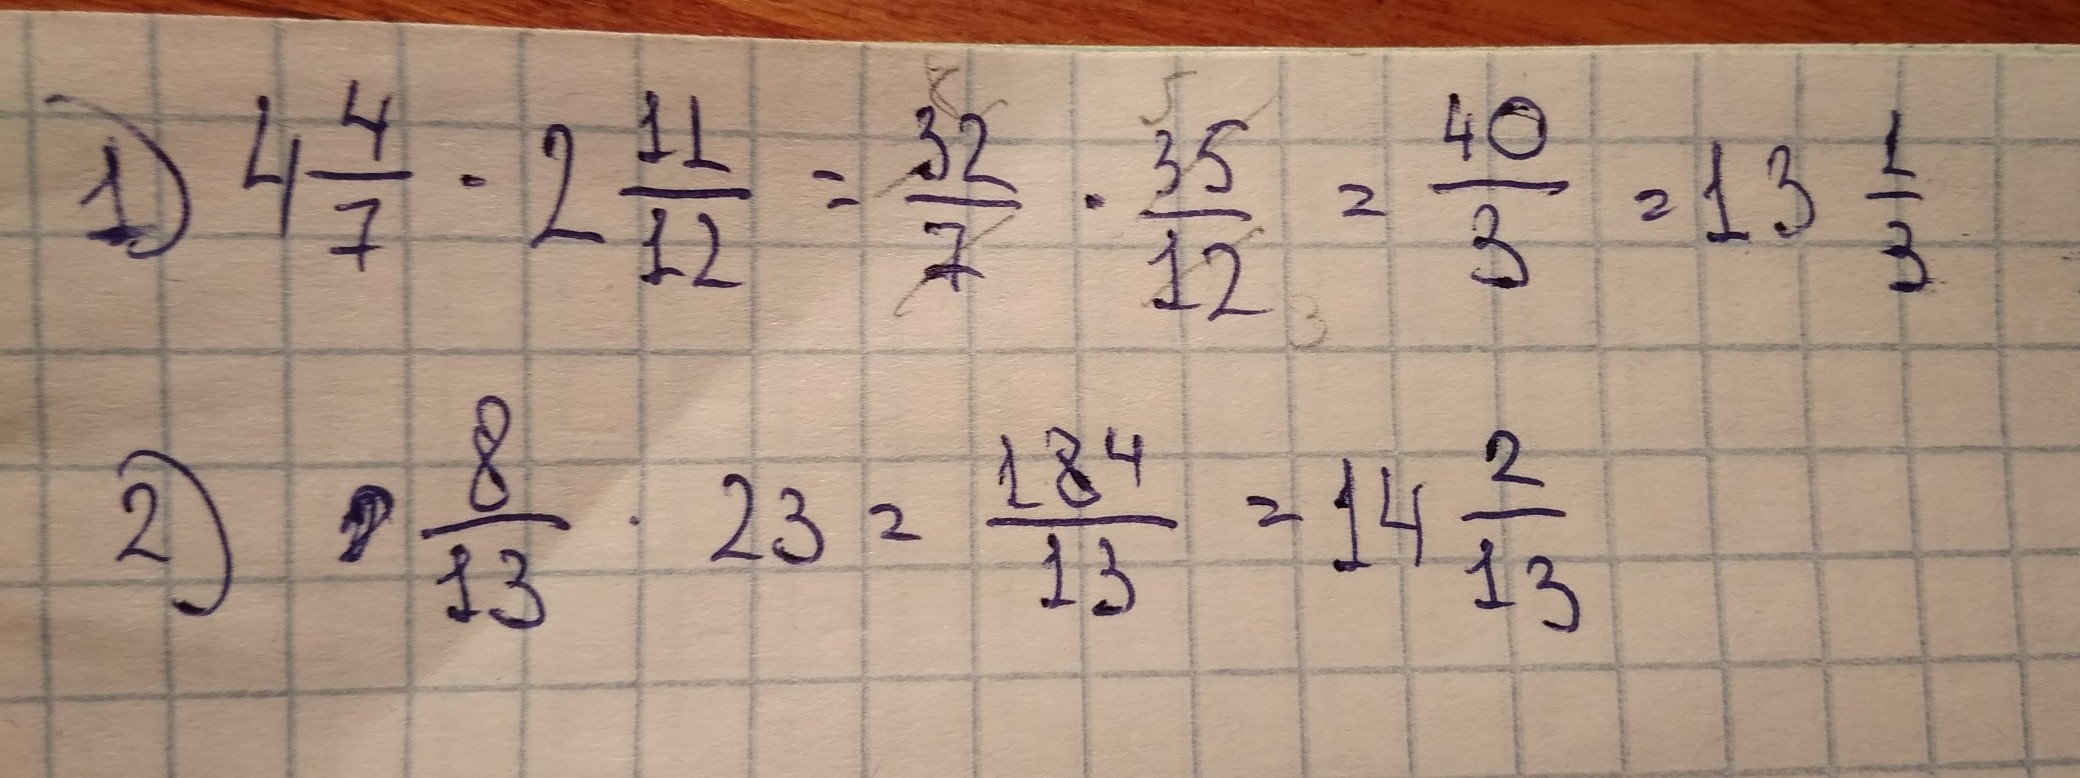 1) 4 4/7 · 2 11/12 = 32/7 · 35/12 = 40/3 = 13 1/3
2) 8/13 · 23 = 184/13 = 14 2/13